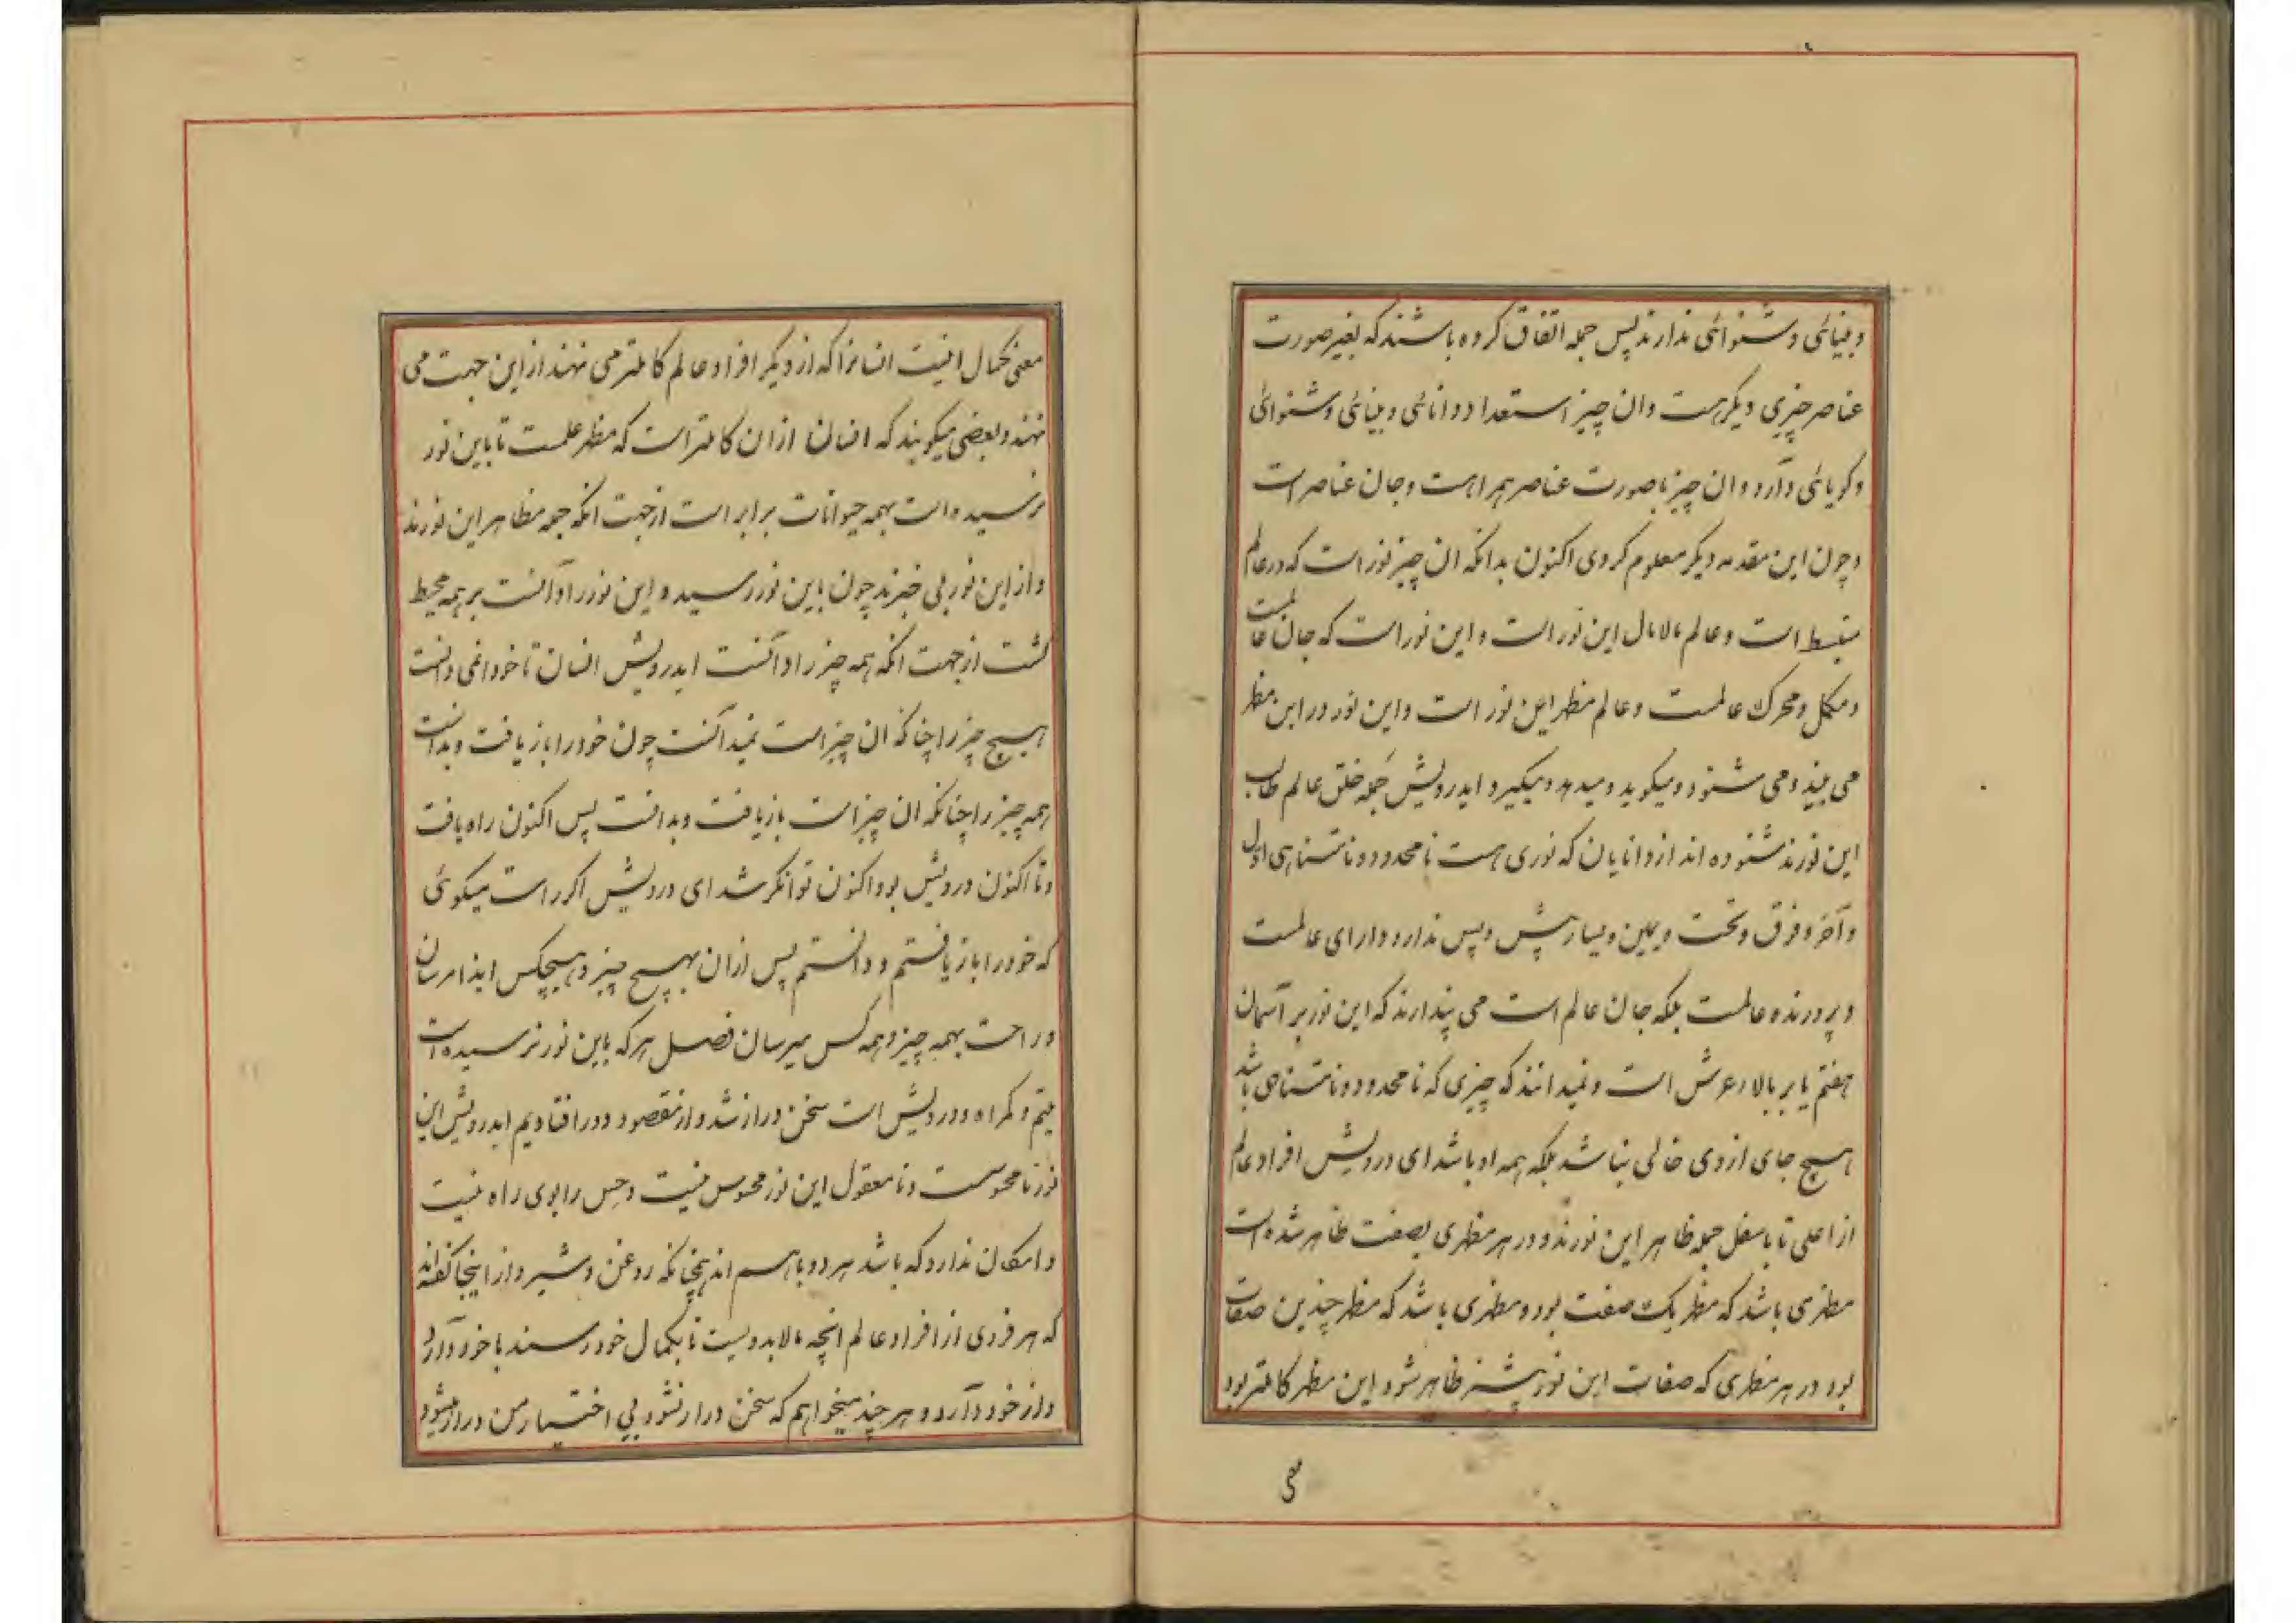 و بینائی و شنوائی ندارند پس جمله اتفاق کرده باشند که بغیر صورت
عناصر چیزی دیگر هست و ان چیز استعداد دانائی و بینائی و شنوائی
و کویائی دارد و ان چیز با صورت عناصر همراهست و جان عناصر است
و چون این مقدمه دیگر معلوم کردی اکنون بدانکه ان چیز نور است که در عالم
منبسط است و عالم مالامال این نور است و این نور است که جان عالمست
و مکمل و محرک عالمست و عالم مظهر این نور است و این نور در این مظهر
می بیند و می شنود و میکوید و میدهد و میکیرد ایدرویش جمله خلق عالم طالب
این نورند شنوده اند از دانایان که نوری هست نامحدود و نامتناهی اول
و آخر و فوق و تحت و یمین و یسار پیش و پس ندارد و دارای عالمست
و پرورنده عالمست بلکه جان عالم است می پندارند که این نور بر آسمان
هفتم یا بر بالاء عرش است و نمیدانند که چیزی که نامحدود و نامتناهی باشد
هیچ جای از وی خالی نباشد بلکه همه او باشد ای درویش افراد عالم
از اعلی تا باسفل جمله ظاهر این نورند و در هر مظهری بصفت ظاهر شده است
مظهری باشد که مظهر یک صفت بود و مظهری باشد که مظهر چندین صفات
بود در هر مظهری که صفات این نور بیشتر ظاهر شود این مظهر کاملتر بود
معنی
معنی کمال اینست انسانرا که از دیگر افراد عالم کاملتر می نهند از این جهت می
نهند و بعضی میکویند که انسان از ان کاملتر است که مظهر علمست تا باین نور
نرسیده است بهمه حیوانات برابر است از جهت انکه جمله مظاهر این نورند
و از این نور بی خبرند چون باین نور رسیده و این نور را دانست بر همه محیط
کشت از جهت انکه همه چیز را دانست ایدرویش انسان تا خود را نمی دانست
هیچ چیز را چنانکه ان چیز است نمیدانست چون خود را باز یافت و بدانست
همه چیز را چنانکه ان چیز است باز یافت و بدانست پس اکنون راه یافت
و تا اکنون درویش بود اکنون توانکر شد ای درویش اکر راست میکوئی
که خود را باز یافتم و دانستم پس از ان بهیچ چیز و هیچکس ایذا مرسان
و راحت بهمه چیز و همه کس میرسان فصل هر که باین نور نرسیده است
یتیم و کمراه و درویش است سخن دراز شد و از مقصود دور افتادیم ایدرویش این
نور نامحسوست و نامعقول این نور محسوس نیست و حس را بوی راه نیست
و امکان ندارد که باشد هر دو باهم اند همچنانکه روغن و شیر و از اینجا گفته اند
که هر فردی از افراد عالم انچه مالابد ویست تا بکمال خود رسند با خود دارد
و از خود دارد و هر چند میخواهم که سخن دراز نشود بی اختیار من دراز میشود